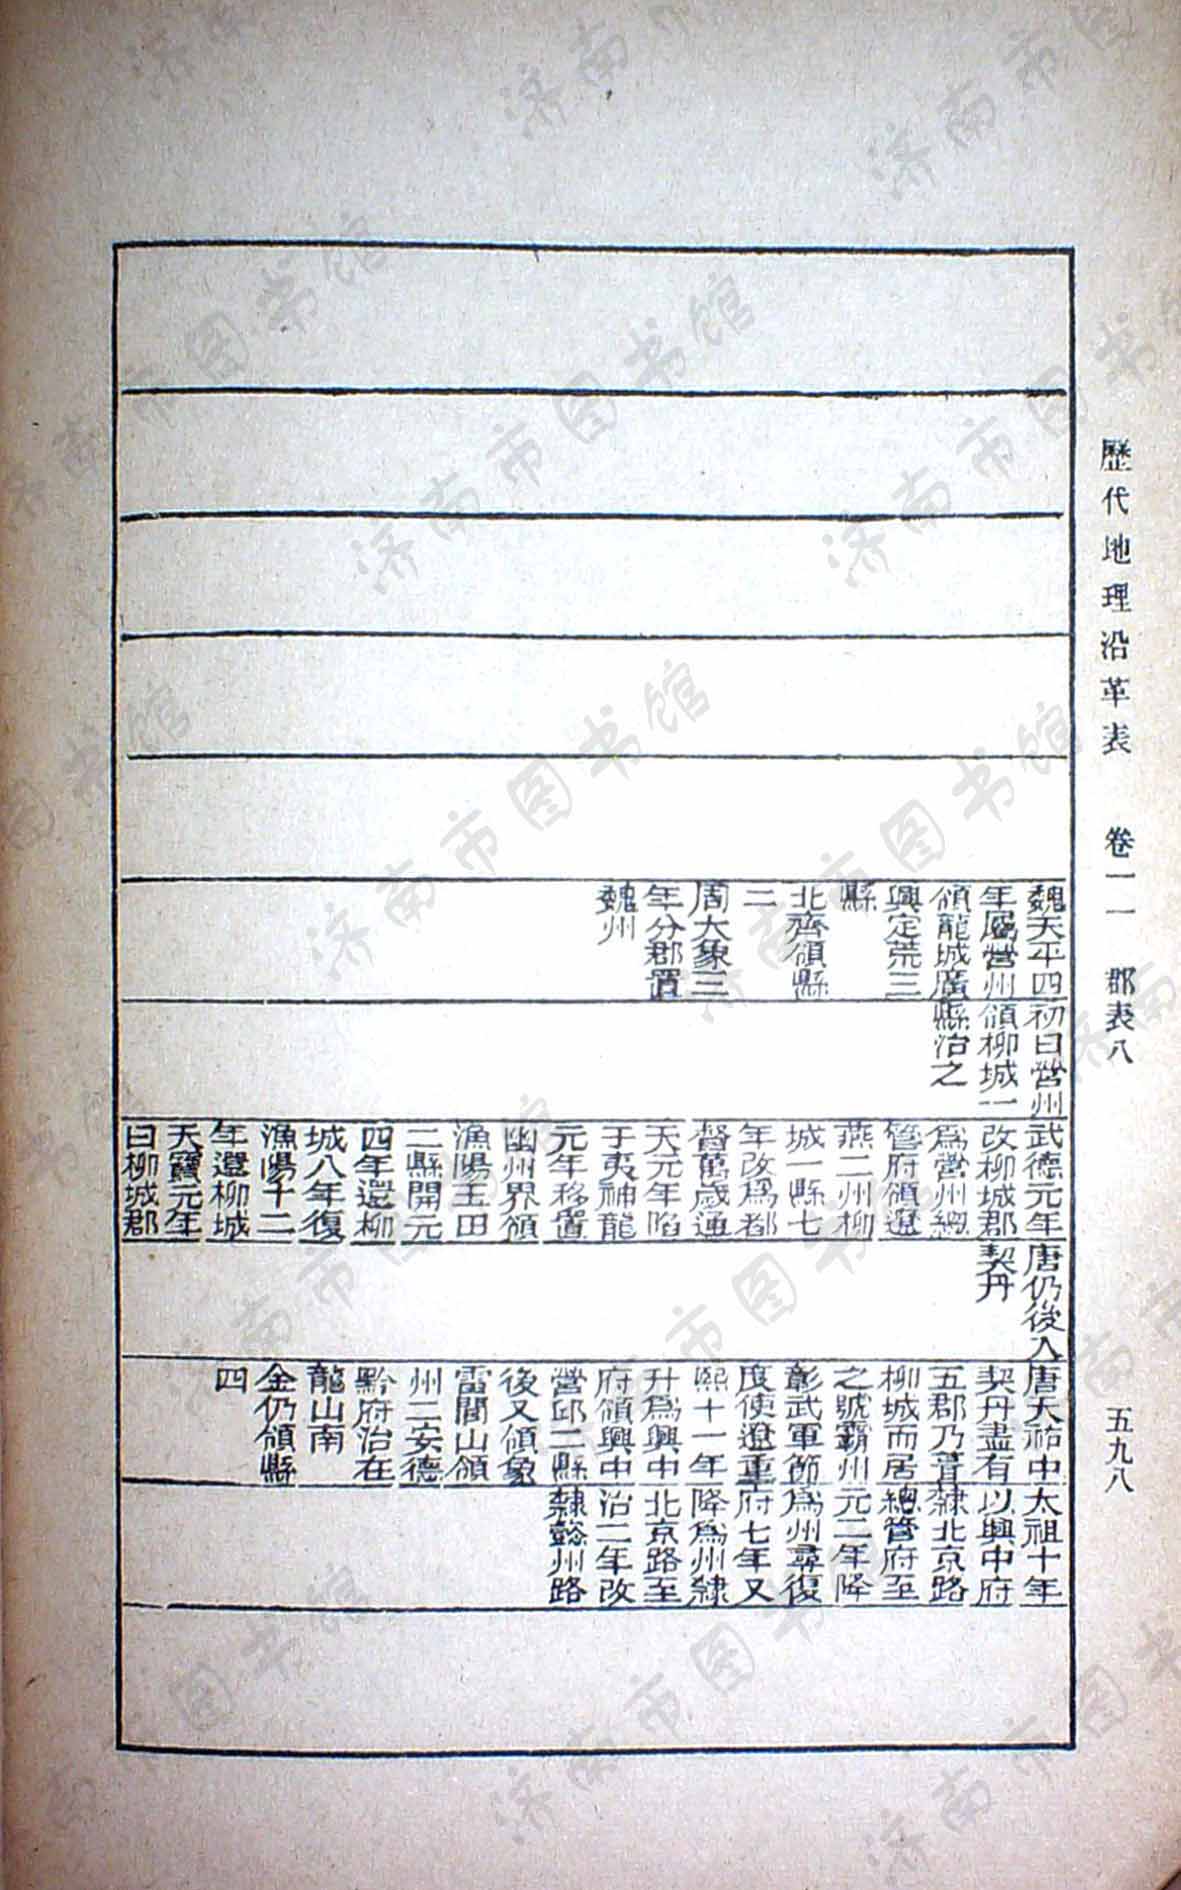 歷代地理沿革表　卷一一　郡表八　五九八
魏天平四
年屬營州
領龍城廣
興定荒三
縣
北齊領縣
二
周大象三
年分郡置
魏州
初曰營州
領柳城一
縣治之
武德元年
改柳城郡
為營州總
管府領遼
燕二州柳
城一縣七
年改為都
督萬歲通
天元年陷
于夷神龍
元年移置
幽州界領
漁陽玉田
二縣開元
四年還柳
城八年復
漁陽十二
年還柳城
天寶元年
曰柳城郡
唐仍後入
契丹
唐天祐中
契丹盡有
五郡乃葺
柳城而居
之號霸州
彰武軍節
度使遼重
熙十一年
升為興中
府領興中
營邱二縣
後又領象
雷閭山領
州二安德
黔府治在
龍山南
金仍領縣
四
太祖十年
以興中府
隸北京路
總管府至
元二年降
為州尋復
府七年又
降為州隸
北京路至
治二年改
隸懿州路
济南市图书馆